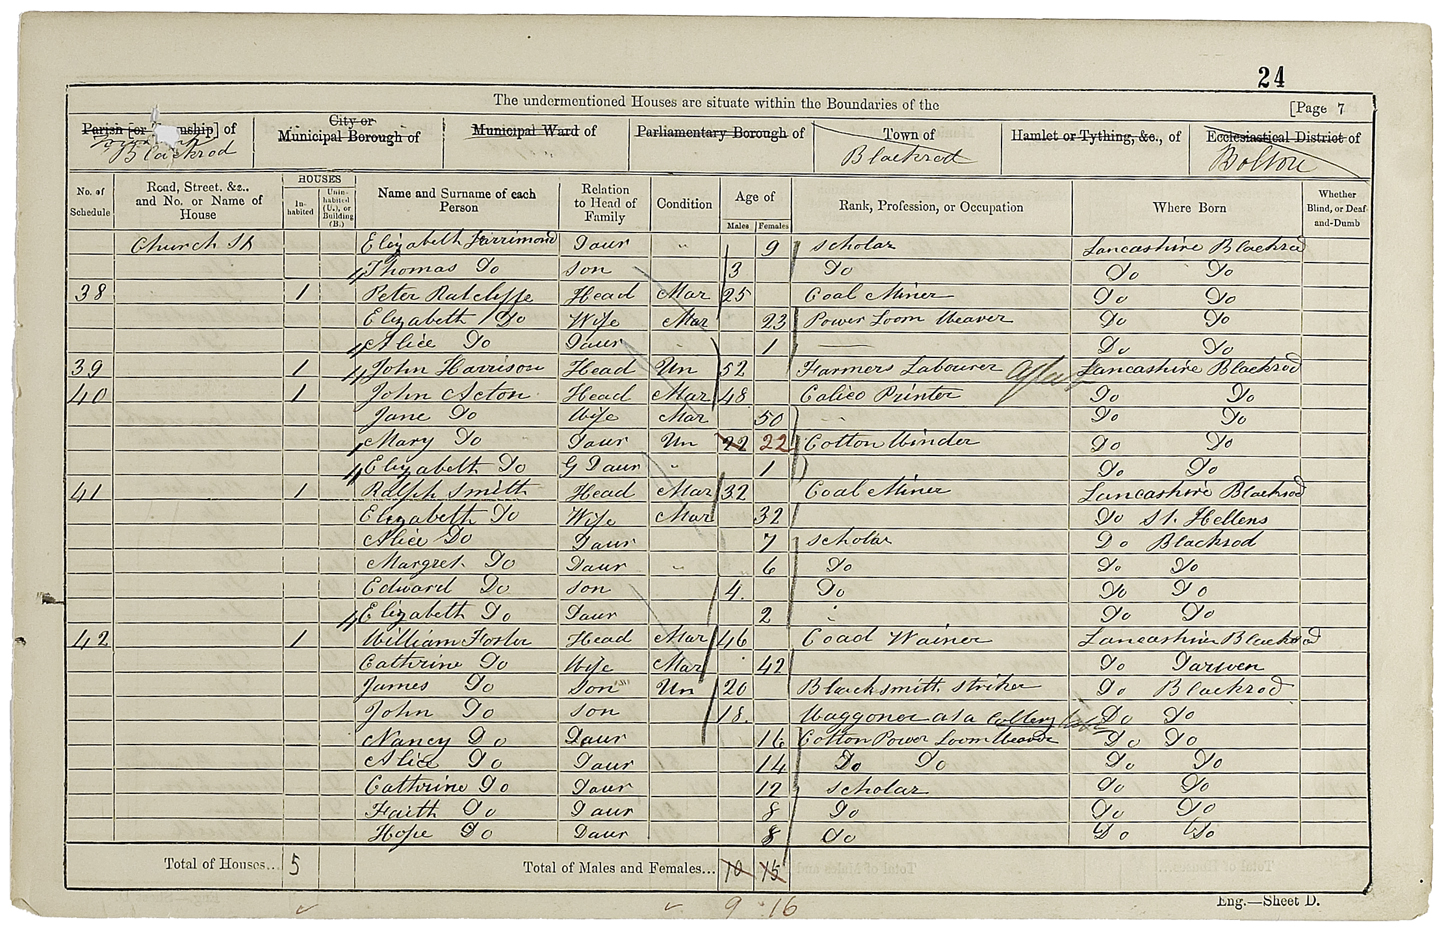 24
The undermentioned Houses are situate within the Boundaries of the [Page 7
Parish [or Township] of City or Municipal Borough of Municipal Ward of Parliamentary Borough of Town of Hamlet or Tything, &c., of Ecclesiastical District of
Blackrod Blackrod Bolton
No. of Schedule Road, Street, &c., and No. or Name of House HOUSES Inhabited Uninhabited (U.), or Building (B.) Name and Surname of each Person Relation to Head of Family Condition Age of Males Females Rank, Profession, or Occupation Where Born Whether Blind, or Deaf-and-Dumb
Church St Elizabeth Daur " 9 Scholar Lancashire Blackrod
Thomas Do Son 3 Do Do Do
38 1 Peter Ratcliffe Head Mar 25 Coal Miner Do Do
Elizabeth Do Wife Mar 23 Power Loom Weaver Do Do
Alice Do Daur 1 Do Do
39 1 John Harrison Head Un 52 Farmers Labourer Lancashire Blackrod
40 1 John Acton Head Mar 48 Calico Printer Do Do
Jane Do Wife Mar 50 Do Do
Mary Do Daur Un 22 22 Cotton Winder Do Do
Elizabeth Do G Daur " 1 Do Do
41 1 Ralph Smith Head Mar 32 Coal Miner Lancashire Blackrod
Elizabeth Do Wife Mar 32 Do St. Hellens
Alice Do Daur 7 Scholar Do Blackrod
Margret Do Daur " 6 Do Do Do
Edward Do Son 4 Do Do Do
Elizabeth Do Daur 2 Do Do
42 1 William Foster Head Mar 46 Coad Wainer Lancashire Blackrod
Cathrine Do Wife Mar 42 Do Darwen
James Do Son Un 20 Blacksmith Striker Do Blackrod
John Do Son 18 Waggoner at a Collery Do Do
Nancy Do Daur 16 Cotton Power Loom Weaver Do Do
Alice Do Daur 14 Do Do Do Do
Cathrine Do Daur 12 Scholar Do Do
Faith Do Daur 8 Do Do Do
Hope Do Daur 8 Do Do Do
Total of Houses... 5 Total of Males and Females... 10 15
9 16
Eng.—Sheet D.